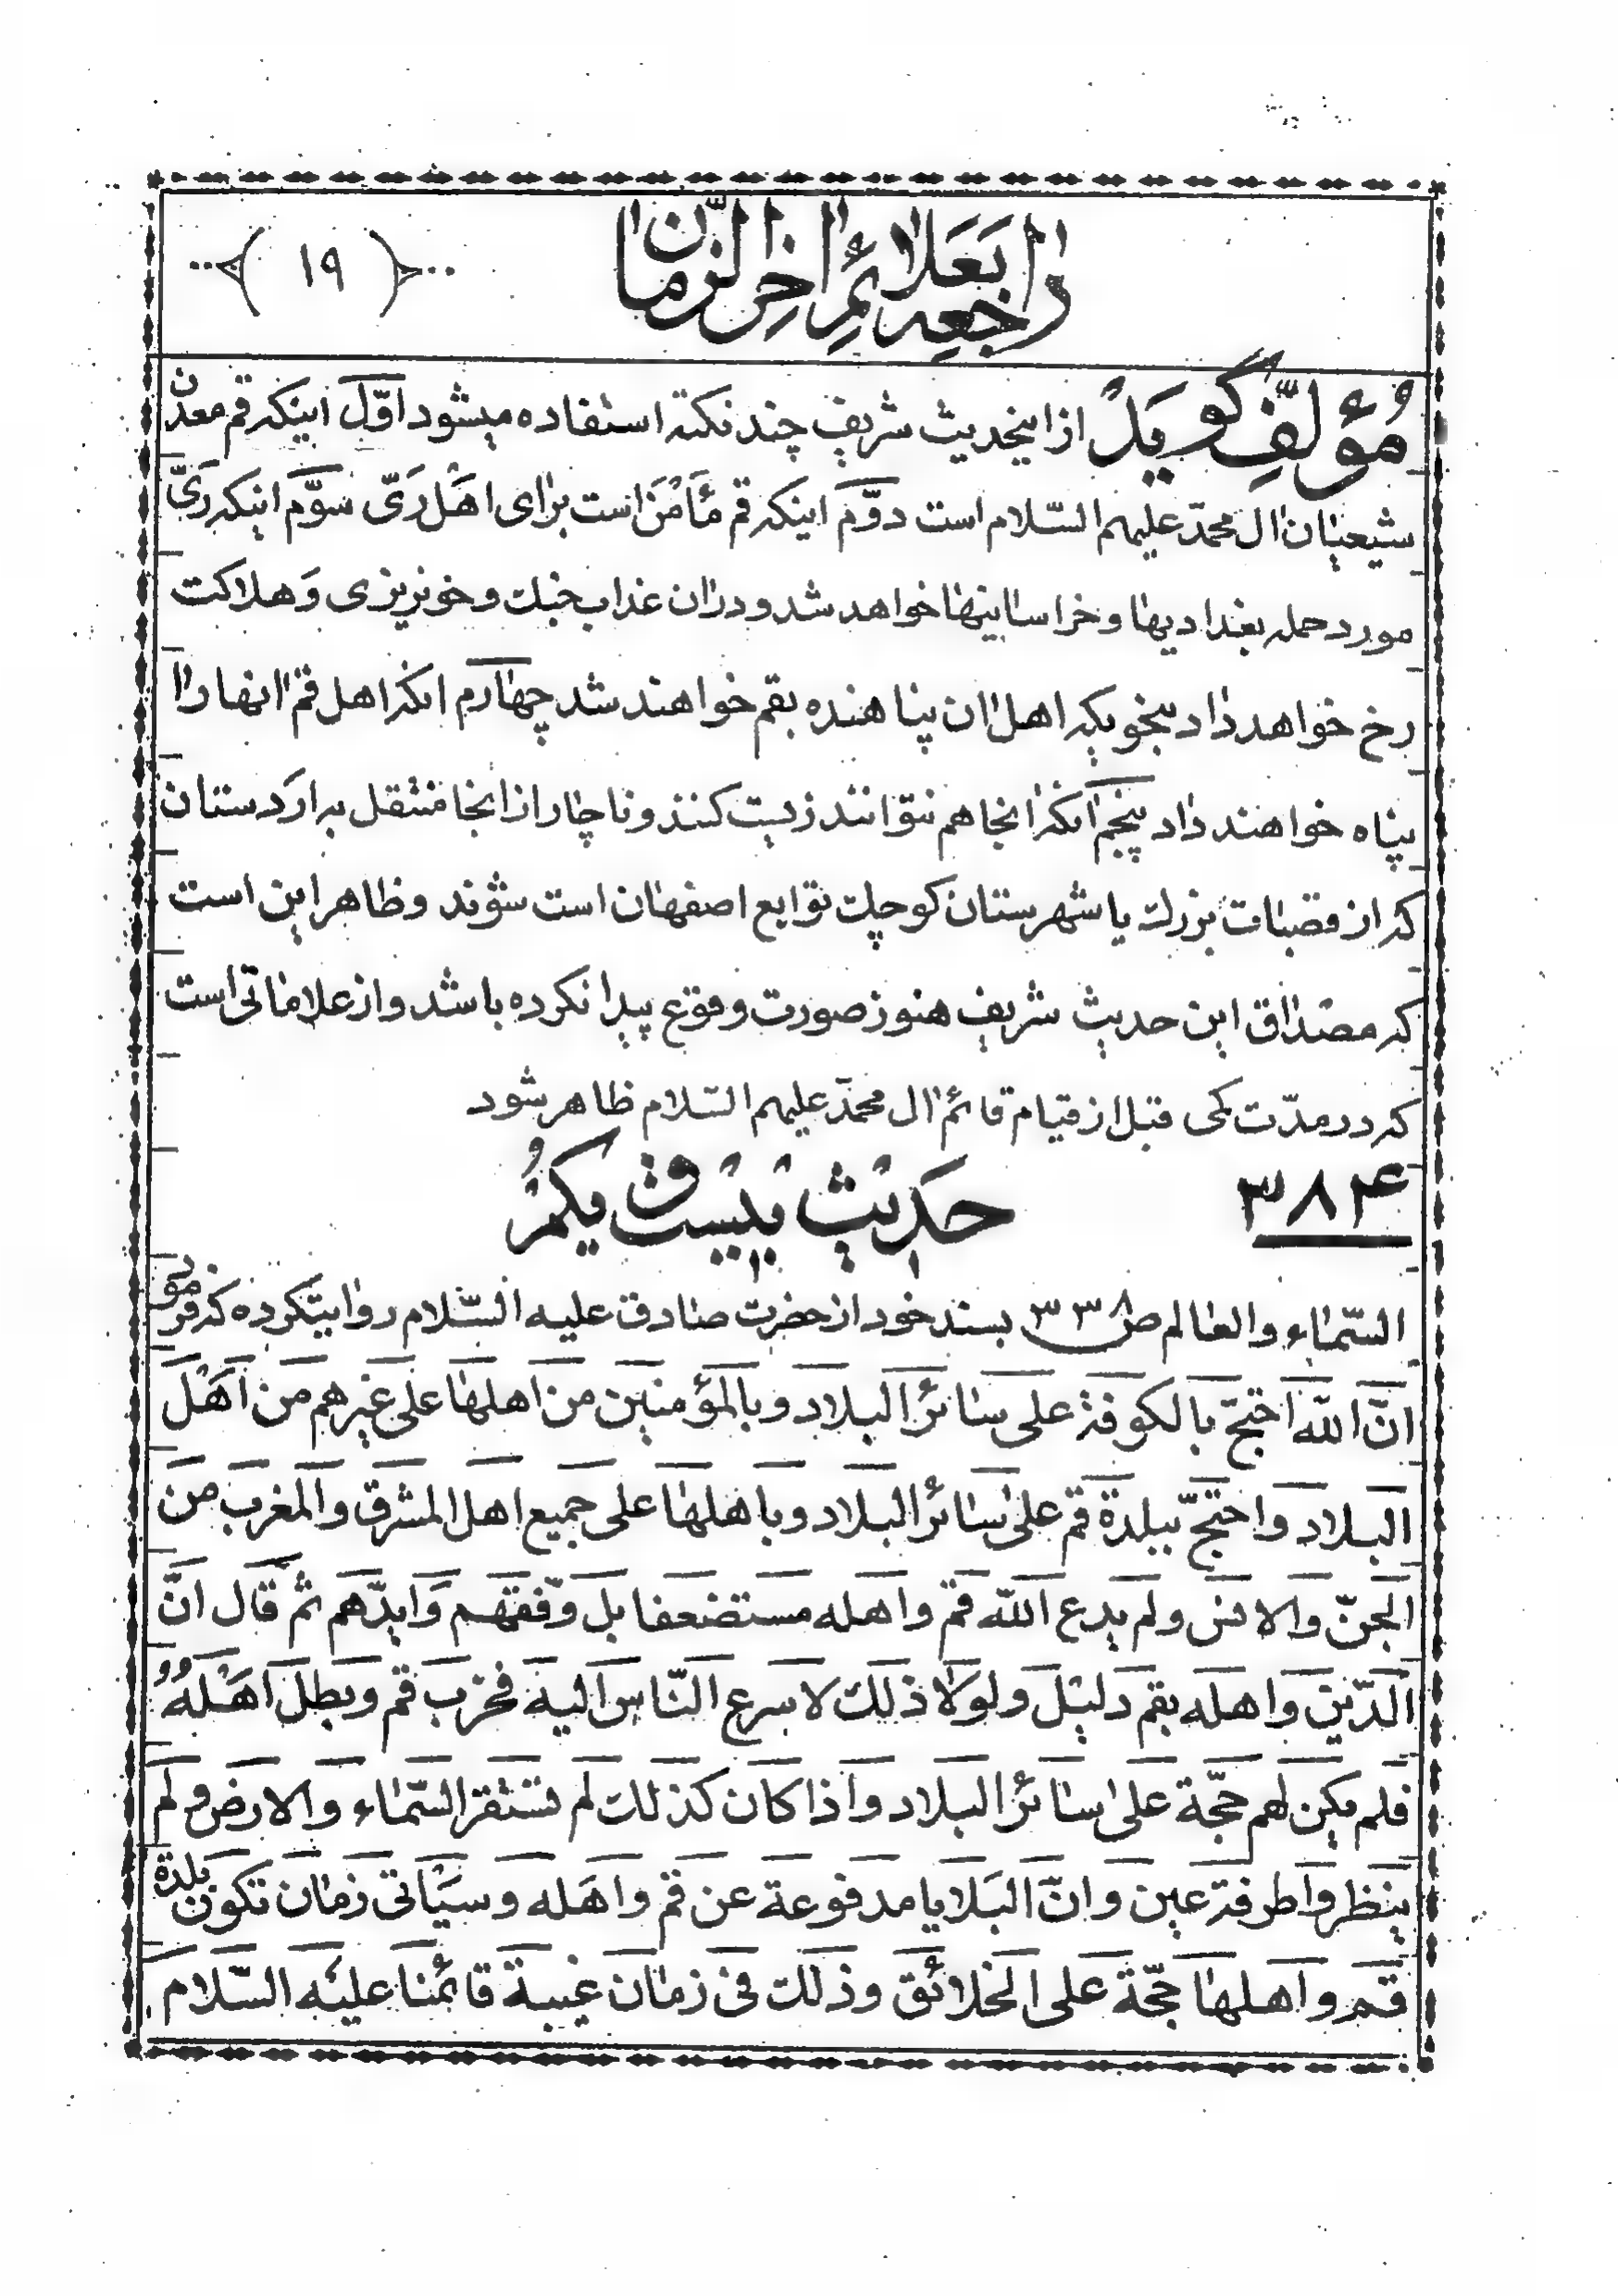 راجعه بعلائم اخرالزمان
( ۱۹ )
مؤلف گوید از اینحدیث شریف چند نکته استفاده میشود اوّل اینکه قم معدن
شیعیان ال محمّد علیهم السّلام است دوّم اینکه قم مأمن است برای اهل ریّ سوّم اینکه ریّ
مورد حمله بغدادیها و خراسانیها خواهد شد و در ان عذاب جنگ و خونریزی و هلاکت
رخ خواهد داد بنحویکه اهل ان پناهنده بقم خواهند شد چهارم انکه اهل قم انها را
پناه خواهند داد پنجم انکه انجا هم نتوانند زیست کنند و ناچار از انجا منتقل به اردستان
که از قصبات بزرگ یا شهرستان کوچک توابع اصفهان است شوند و ظاهر این است
که مصداق این حدیث شریف هنوز صورت وقوع پیدا نکرده باشد و از علاماتی است
که در مدّت کمی قبل از قیام قائم ال محمّد علیهم السّلام ظاهر شود
۳۸۴ حدیث بیست و یکم
السّماء والعالم ص ۳۳۸ بسند خود از حضرت صادق علیه السّلام روایتکرده که فرمود
انّ الله احتجّ بالکوفة علی سائر البلاد و بالمؤمنین من اهلها علی غیرهم من اهل
البلاد واحتجّ ببلدة قم علی سائر البلاد و باهلها علی جمیع اهل المشرق والمغرب من
الجنّ والانس ولم یدع الله قم واهله مستضعفا بل وفّقهم وایّدهم ثم قال انّ
الدّین واهله بقم دلیل ولولا ذلک لاسرع النّاس الیه فخرب قم وبطل اهله
فلم یکن لهم حجّة علی سائر البلاد واذا کان کذلک لم تستقر السّماء والارض ولم
ینظروا طرفة عین وانّ البلایا مدفوعة عن قم واهله وسیأتی زمان تکون بلدة
قم واهلها حجّة علی الخلائق وذلک فی زمان غیبة قائمنا علیه السّلام